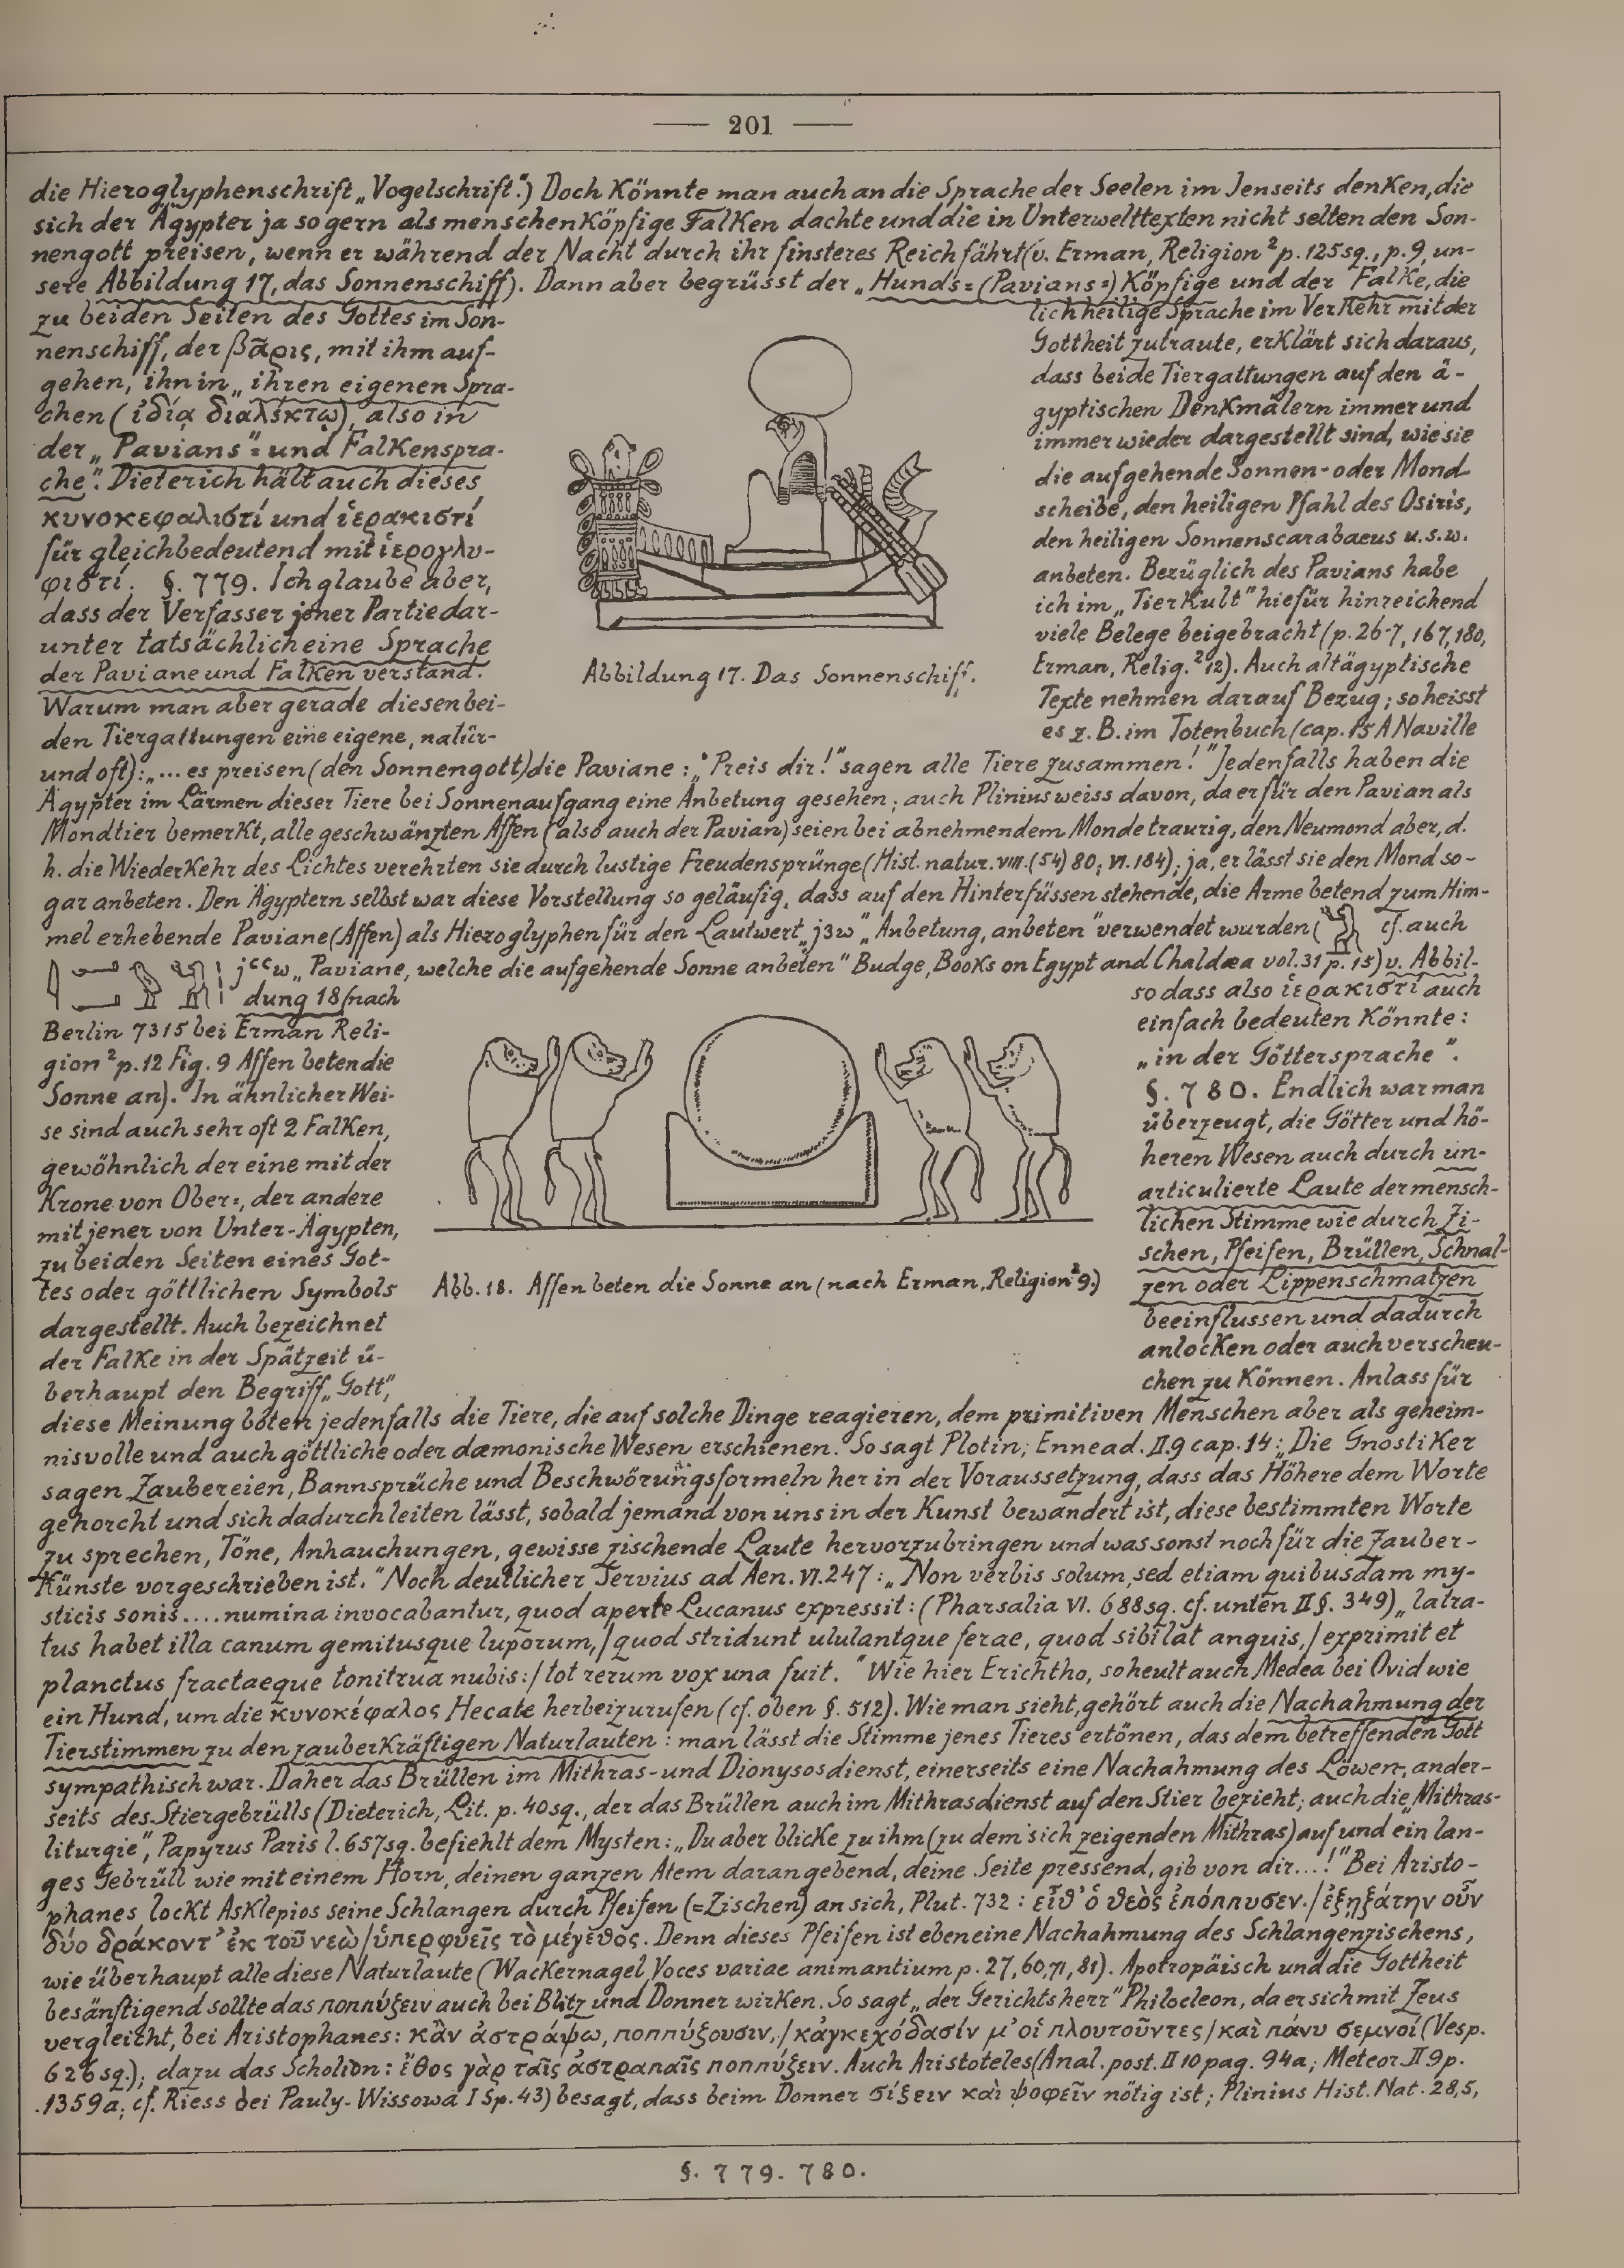 — 201 —
die Hieroglyphenschrift „Vogelschrift".) Doch könnte man auch an die Sprache der Seelen im Jenseits denken, die
sich der Ägypter ja so gern als menschenköpfige Falken dachte und die in Unterwelttexten nicht selten den Son-
nengott preisen, wenn er während der Nacht durch ihr finsteres Reich fährt (v. Erman, Religion² p. 125 sq., p. 9, un-
sere Abbildung 17, das Sonnenschiff). Dann aber begrüsst der „Hunds=(Pavians=)köpfige und der Falke, die
zu beiden Seiten des Gottes im Son-
nenschiff, der βᾶρις, mit ihm auf-
gehen, ihn in „ihren eigenen Spra-
chen (ἰδίᾳ διαλέκτῳ), also in
der „Pavians"= und Falkenspra-
che". Dieterich hält auch dieses
κυνοκεφαλιστί und ἱερακιστί
für gleichbedeutend mit ἱερογλυ-
φιστί. §. 779. Ich glaube aber,
dass der Verfasser jener Partie dar-
unter tatsächlich eine Sprache
der Paviane und Falken verstand.
Warum man aber gerade diesen bei-
den Tiergattungen eine eigene, natür-
Abbildung 17. Das Sonnenschiff.
lich heilige Sprache im Verkehr mit der
Gottheit zutraute, erklärt sich daraus,
dass beide Tiergattungen auf den ä-
gyptischen Denkmälern immer und
immer wieder dargestellt sind, wie sie
die aufgehende Sonnen- oder Mond-
scheibe, den heiligen Pfahl des Osiris,
den heiligen Sonnenscarabaeus u.s.w.
anbeten. Bezüglich des Pavians habe
ich im „Tierkult" hiefür hinreichend
viele Belege beigebracht (p. 26-7, 167, 180,
Erman, Relig.² 12). Auch altägyptische
Texte nehmen darauf Bezug; so heisst
es z. B. im Totenbuch (cap. 15 A Naville
und oft): „... es preisen (den Sonnengott) die Paviane: „Preis dir!" sagen alle Tiere zusammen!" Jedenfalls haben die
Ägypter im Lärmen dieser Tiere bei Sonnenaufgang eine Anbetung gesehen; auch Plinius weiss davon, da er für den Pavian als
Mondtier bemerkt, alle geschwänzten Affen (also auch der Pavian) seien bei abnehmendem Monde traurig, den Neumond aber, d.
h. die Wiederkehr des Lichtes verehrten sie durch lustige Freudensprünge (Hist. natur. VIII. (54) 80; VI. 184); ja, er lässt sie den Mond so-
gar anbeten. Den Ägyptern selbst war diese Vorstellung so geläufig, dass auf den Hinterfüssen stehende, die Arme betend zum Him-
mel erhebende Paviane (Affen) als Hieroglyphen für den Lautwert „j3w" „Anbetung, anbeten" verwendet wurden ( cf. auch
jᶜᶜw „Paviane, welche die aufgehende Sonne anbeten" Budge, Books on Egypt and Chaldæa vol. 31 p. 15) v. Abbil-
dung 18 (nach
Berlin 7315 bei Erman Reli-
gion² p. 12 Fig. 9 Affen beten die
Sonne an). In ähnlicher Wei-
se sind auch sehr oft 2 Falken,
gewöhnlich der eine mit der
Krone von Ober=, der andere
mit jener von Unter-Ägypten,
zu beiden Seiten eines Got-
tes oder göttlichen Symbols
dargestellt. Auch bezeichnet
der Falke in der Spätzeit ü-
berhaupt den Begriff „Gott",
Abb. 18. Affen beten die Sonne an (nach Erman, Religion² 9.)
so dass also ἱερακιστί auch
einfach bedeuten könnte:
„in der Göttersprache".
§. 780. Endlich war man
überzeugt, die Götter und hö-
heren Wesen auch durch un-
articulierte Laute der mensch-
lichen Stimme wie durch Zi-
schen, Pfeifen, Brüllen, Schnal-
zen oder Lippenschmatzen
beeinflussen und dadurch
anlocken oder auch verscheu-
chen zu können. Anlass für
diese Meinung boten jedenfalls die Tiere, die auf solche Dinge reagieren, dem primitiven Menschen aber als geheim-
nisvolle und auch göttliche oder dæmonische Wesen erschienen. So sagt Plotin, Ennead. II.9 cap. 14: „Die Gnostiker
sagen Zaubereien, Bannsprüche und Beschwörungsformeln her in der Voraussetzung, dass das Höhere dem Worte
gehorcht und sich dadurch leiten lässt, sobald jemand von uns in der Kunst bewandert ist, diese bestimmten Worte
zu sprechen, Töne, Anhauchungen, gewisse zischende Laute hervorzubringen und was sonst noch für die Zauber-
künste vorgeschrieben ist." Noch deutlicher Servius ad Aen. VI. 247: „Non verbis solum, sed etiam quibusdam my-
sticis sonis .... numina invocabantur, quod aperte Lucanus expressit: (Pharsalia VI. 688 sq. cf. unten II §. 349) „latra-
tus habet illa canum gemitusque luporum,/ quod stridunt ululantque ferae, quod sibilat anguis,/ exprimit et
planctus fractaeque tonitrua nubis:/ tot rerum vox una fuit." Wie hier Erichtho, so heult auch Medea bei Ovid wie
ein Hund, um die κυνοκέφαλος Hecate herbeizurufen (cf. oben §. 512). Wie man sieht, gehört auch die Nachahmung der
Tierstimmen zu den zauberkräftigen Naturlauten: man lässt die Stimme jenes Tieres ertönen, das dem betreffenden Gott
sympathisch war. Daher das Brüllen im Mithras- und Dionysosdienst, einerseits eine Nachahmung des Löwen-, ander-
seits des Stiergebrülls (Dieterich, Lit. p. 40 sq., der das Brüllen auch im Mithrasdienst auf den Stier bezieht; auch die „Mithras-
liturgie", Papyrus Paris l. 657 sq. befiehlt dem Mysten: „Du aber blicke zu ihm (zu dem sich zeigenden Mithras) auf und ein lan-
ges Gebrüll wie mit einem Horn, deinen ganzen Atem darangebend, deine Seite pressend, gib von dir...!" Bei Aristo-
phanes lockt Asklepios seine Schlangen durch Pfeifen (=Zischen) an sich, Plut. 732: εἶθ' ὁ θεὸς ἐπόππυσεν./ ἐξῃξάτην οὖν
δύο δράκοντ' ἐκ τοῦ νεὼ/ ὑπερφυεῖς τὸ μέγεθος. Denn dieses Pfeifen ist eben eine Nachahmung des Schlangenzischens,
wie überhaupt alle diese Naturlaute (Wackernagel, Voces variae animantium p. 27, 60, 71, 81). Apotropäisch und die Gottheit
besänftigend sollte das ποππύζειν auch bei Blitz und Donner wirken. So sagt „der Gerichtsherr" Philocleon, da er sich mit Zeus
vergleicht, bei Aristophanes: κἂν ἀστράψω, ποππύζουσιν,/ κἀγκεχόδασίν μ' οἱ πλουτοῦντες/ καὶ πάνυ σεμνοί (Vesp.
626 sq.); dazu das Scholion: ἔθος γὰρ ταῖς ἀστραπαῖς ποππύζειν. Auch Aristoteles (Anal. post. II 10 pag. 94a; Meteor. II 9 p.
1359a; cf. Riess bei Pauly-Wissowa I Sp. 43) besagt, dass beim Donner σίζειν καὶ ψοφεῖν nötig ist; Plinius Hist. Nat. 28,5,
§. 779. 780.